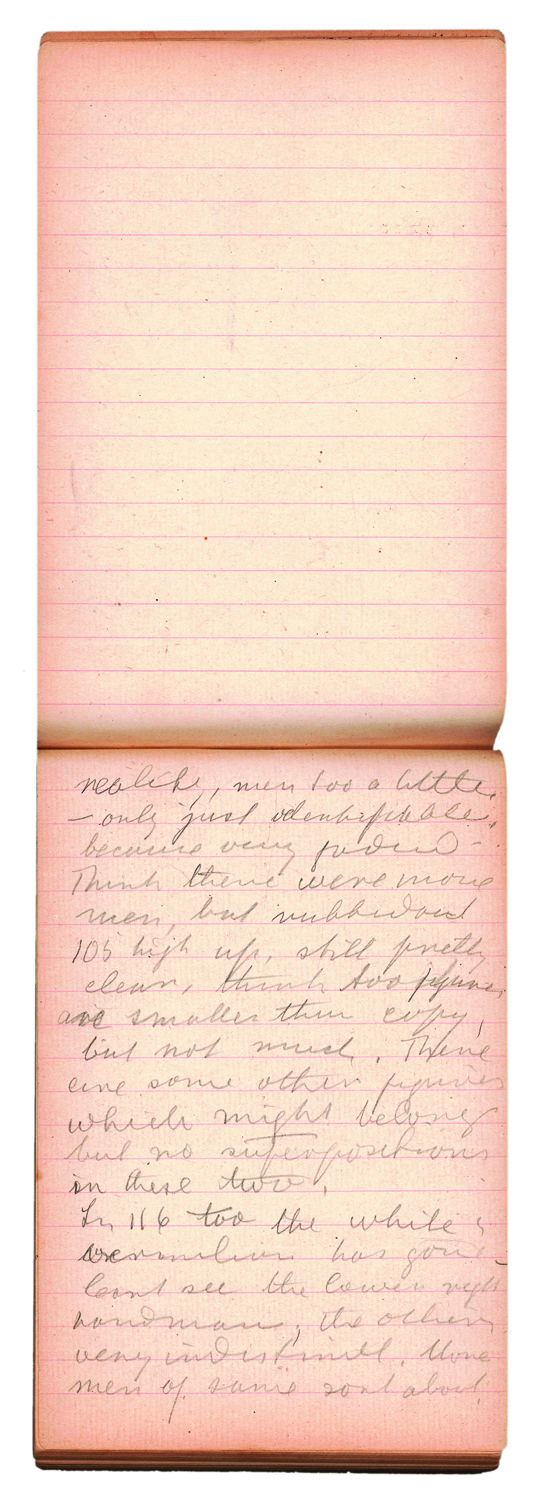 men too a little
- only just identifiable,
because very faded -
Think there were more
men, but rubbed out
105 high up, still pretty
clean, think too figures
are smaller than copy,
but not much. There
are some other figures
which might belong
but no superpositions
in these two.
In 116 too the white &
vermilion has gone -
Cant see the lower right
hand man, the others
very indistinct. More
men of same sort about